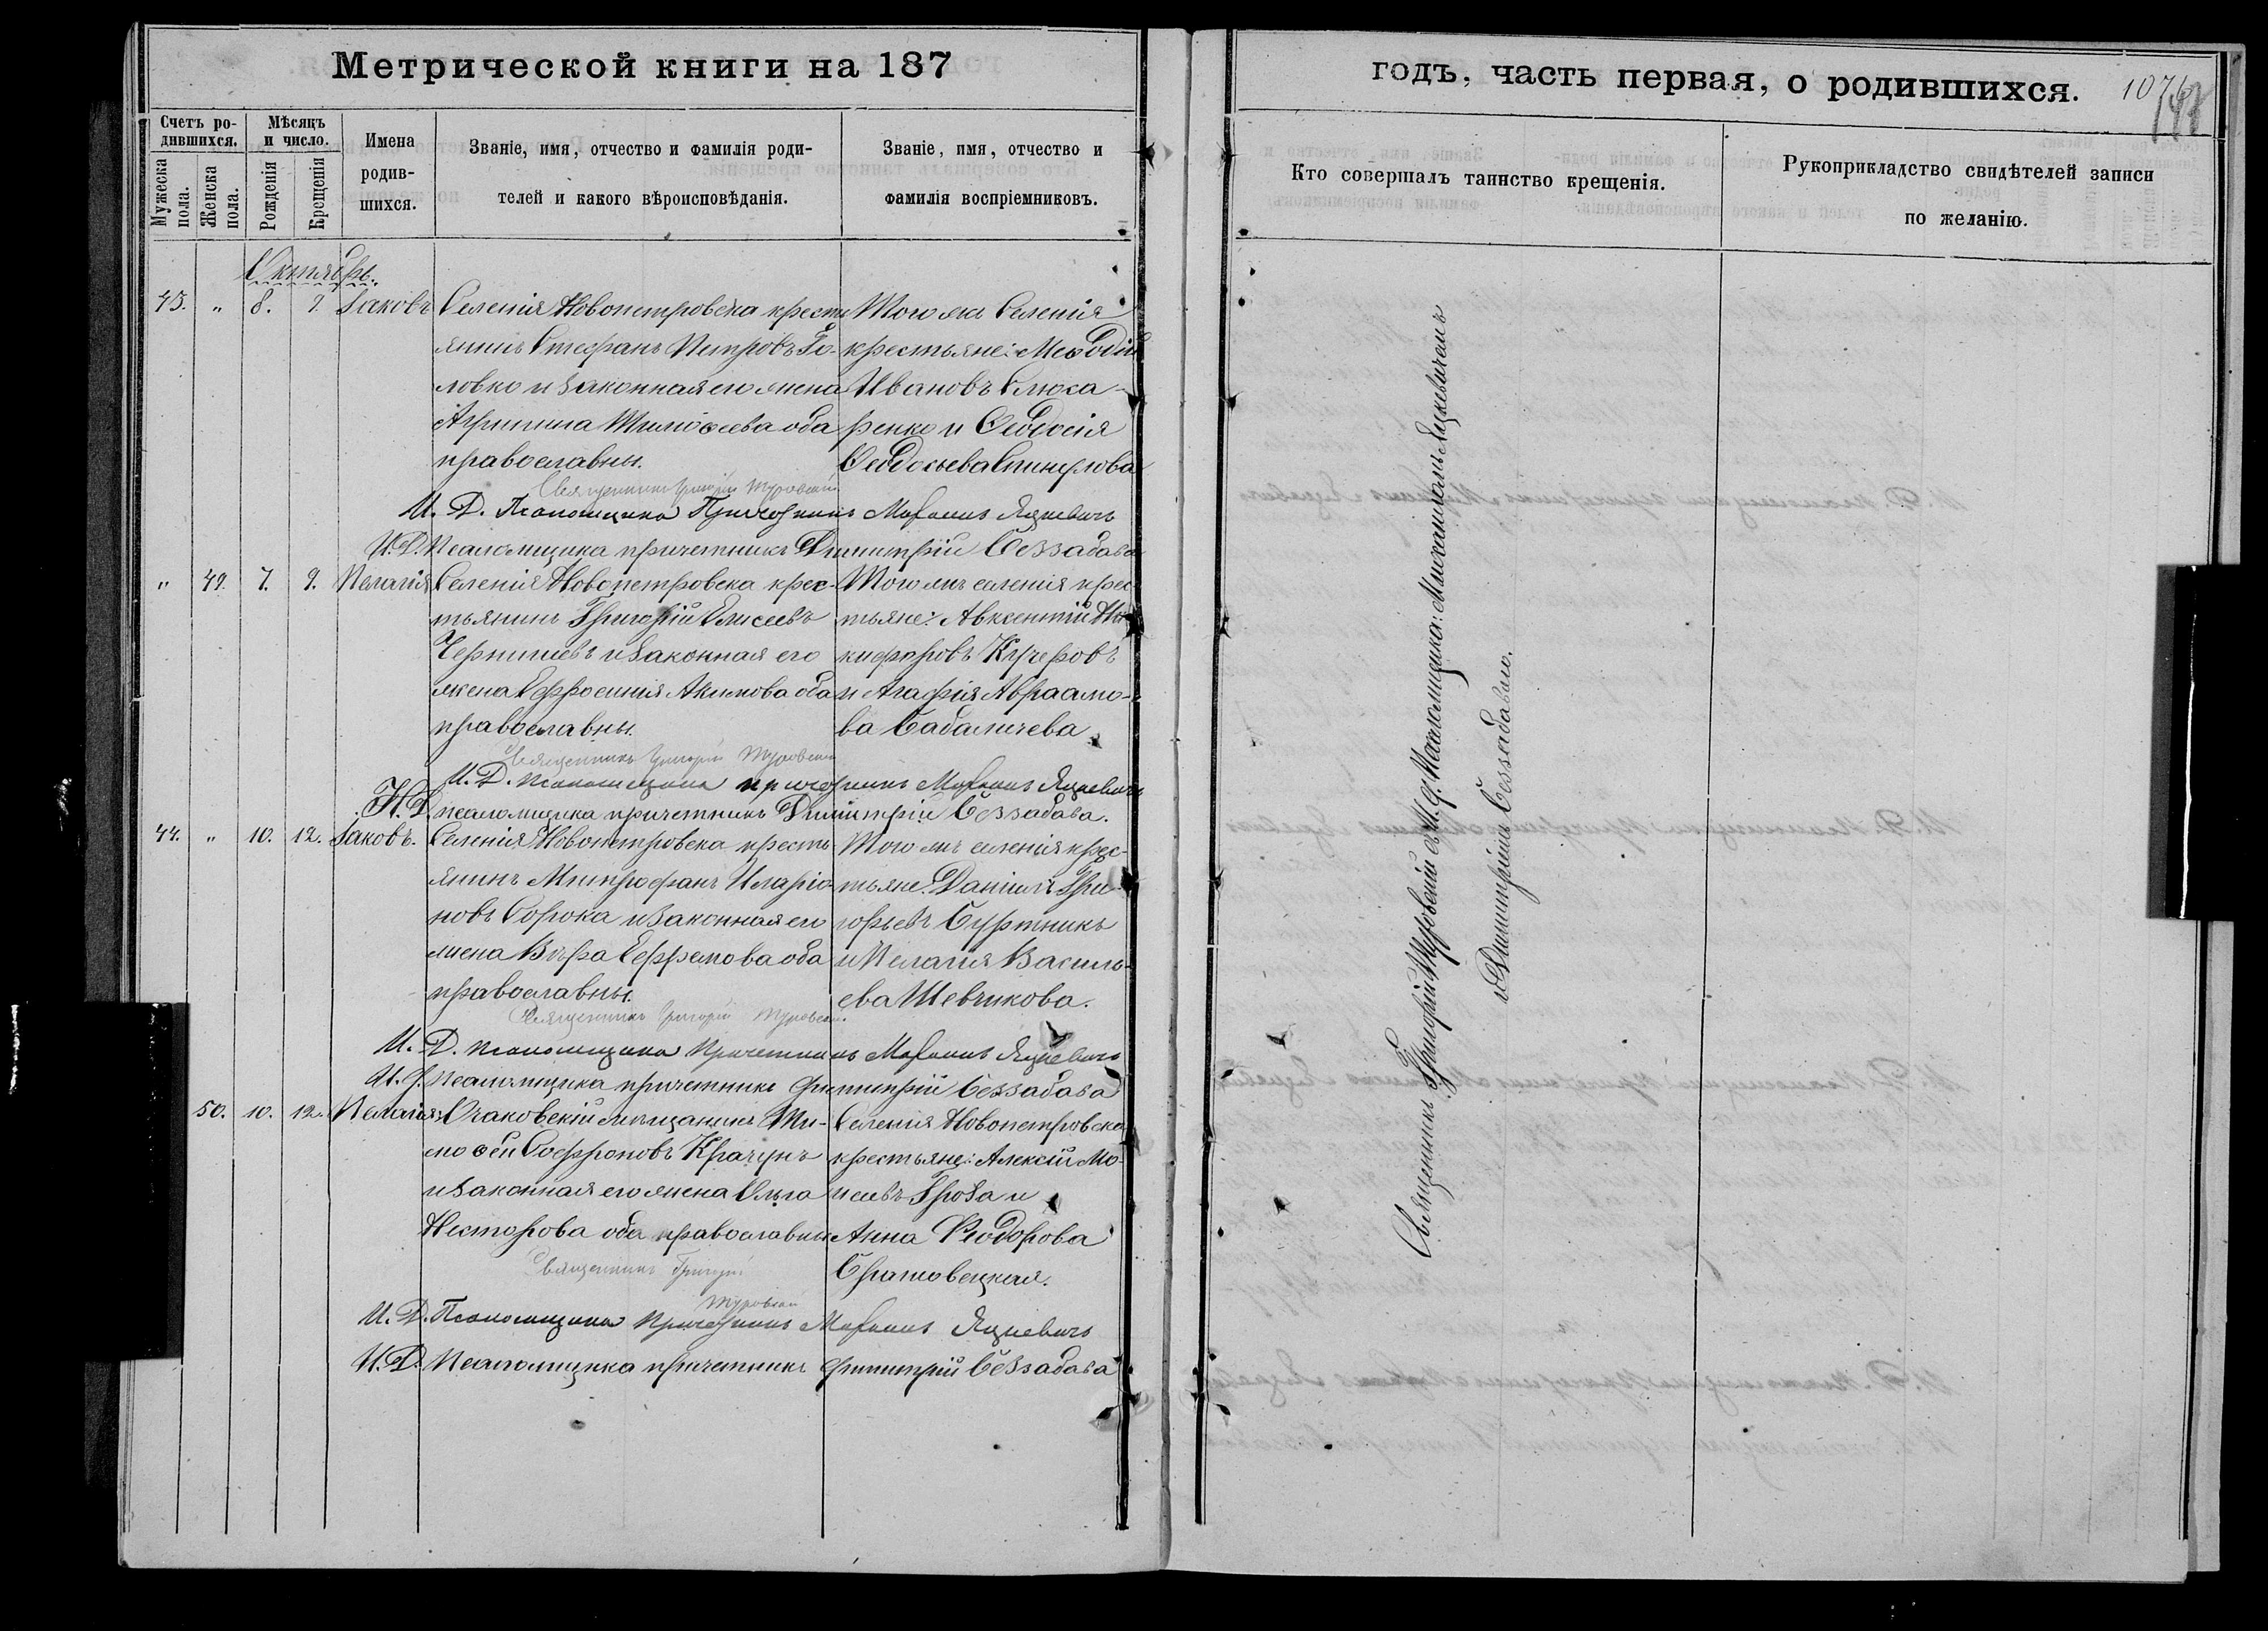 Метрической книги на 187
годъ, часть первая, о родившихся.
107
Счетъ родившихся.
Мужеска пола.
Женска пола.
Мѣсяцъ и число.
Рожденія
Крещенія
Имена родившихся.
Званіе, имя, отчество и фамилія роди-
телей и какого вѣроисповѣданія.
Званіе, имя, отчество и
фамилія воспріемниковъ.
Кто совершалъ таинство крещенія.
Рукоприкладство свидѣтелей записи
по желанію.
Октябрь.
43. " 8. 9. Іаковъ
Селенія Новопетровска кресть
янинъ Стефанъ Петровъ Го-
ловко и законная его жена
Агрипина Тимоѳеева оба
православны.
Того же Селенія
крестьяне: Меѳодій
Ивановъ Слюса-
ренко и Ѳеодосія
Ѳеодосьева
Священникъ Григорій Туровскій
И. Д. Псаломщика Причетникъ Михаилъ Яцкевичъ
И. Д. Псаломщика причетникъ Димитрій Беззабава
" 49. 7. 9. Пелагія
Селенія Новопетровска крес-
тьянинъ Григорій Елисеевъ
Чернышевъ и законная его
жена Евфросинія Акимова оба
православны.
Того жъ селенія крес
тьяне: Авксентій Ни
кифоровъ Кучеровъ
и Агафія Авраамо-
ва Бабамичева
Священникъ Григорій Туровскій
И. Д. Псаломщика причетникъ Михаилъ Яцкевичъ
И. Д. псаломщика причетникъ Димитрій Беззабава.
44. " 10. 12. Іаковъ.
Селенія Новопетровска кресть
янинъ Митрофанъ Иларіо
новъ Сорока и законная его
жена Вѣра Ефремова оба
православны.
Того жъ селенія крес-
тьяне: Даніилъ Гри-
горьевъ Буртникъ
и Пелагія Василь-
ева Шевчикова.
Священникъ Григорій Туровскій.
И. Д. Псаломщика Причетникъ Михаилъ Яцкевичъ
И. д. Псаломщика причетникъ Димитрій Беззабава
50. 10. 12. Пелагія
Очаковскій мѣщанинъ Ти-
моѳей Софроновъ Крачунъ
и законная его жена Ольга
Несторова оба православны
Селенія Новопетровска
крестьяне: Алексій Мо-
исеевъ Гроза и
Анна Ѳеодорова
Братовецкая.
Священникъ Григорій
Туровскій
И. Д. Псаломщика Причетникъ Михаилъ Яцкевичъ
И. Д. Псаломщика причетникъ Димитрій Беззабава
Священникъ Григорій Туровскій съ И. д. Псаломщика: Михаиломъ Яцкевичемъ
и Димитріемъ Беззабавою.